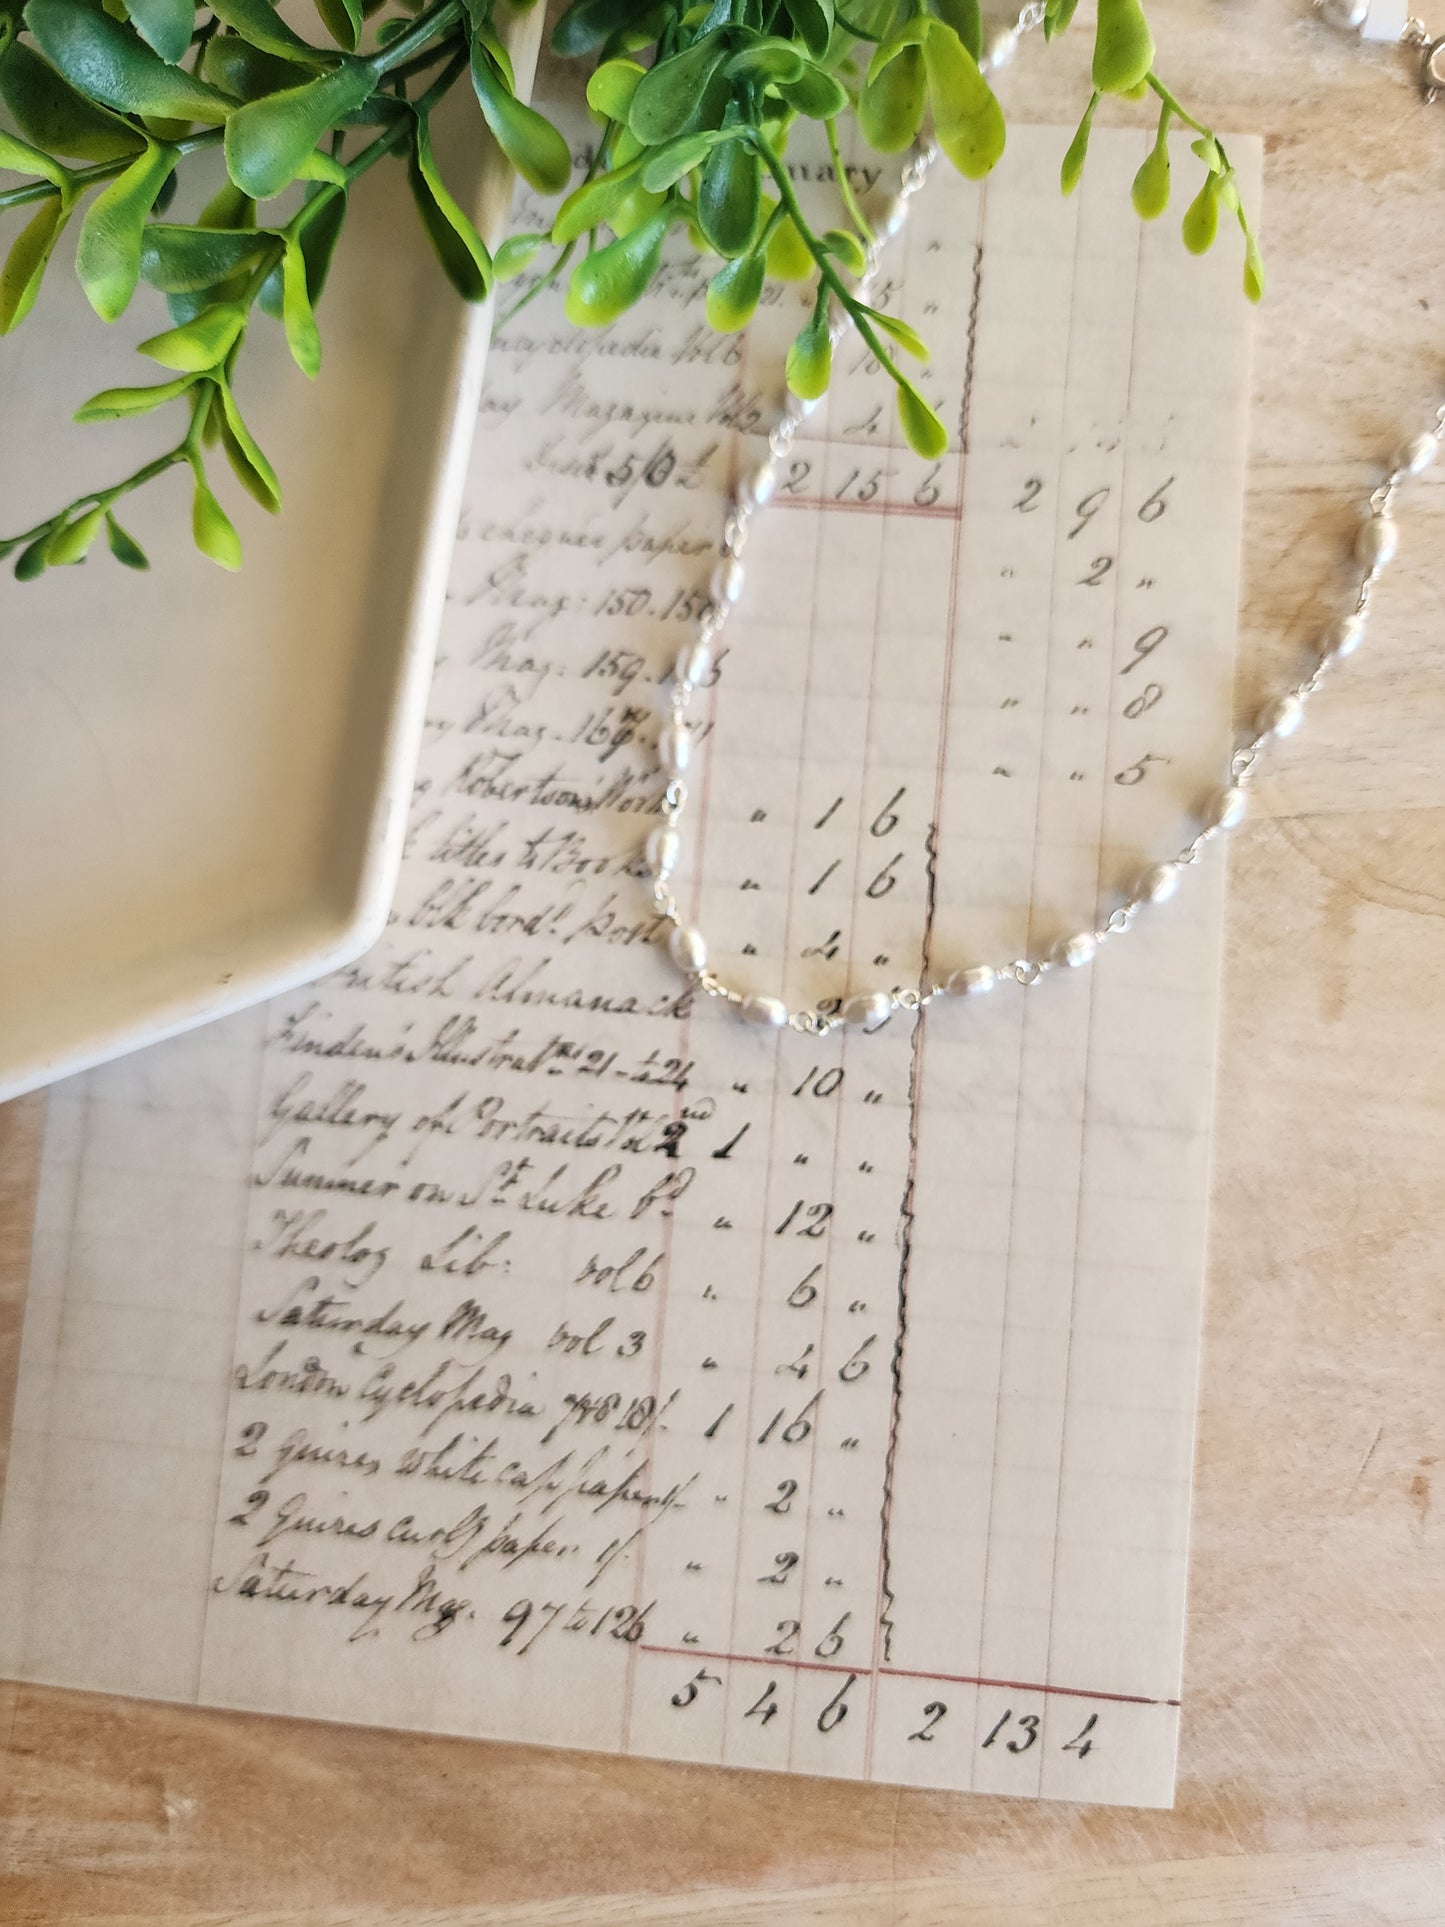 uary
21. " 15 "
ncyclopædia Vol 6 18 "
ay Magazine Vol 2 4 6
2 15 6 2 9 6
cheque paper " 2 "
Mag: 150. " " 9
Mag: 159. " " 8
Mag. " " 5
g Robertson's Works " 1 6
titles to Books " 1 6
blk bord.d post " 4 "
British Almanack 2
Finden's Illustrat.ns 21 to 24 " 10 "
Gallery of Portraits Vol 2nd 1 " "
Sumner on St. Luke bd " 12 "
Theolog Lib: vol 6 " 6 "
Saturday Mag vol 3 " 4 6
London Cyclopædia 7 & 8 18/- 1 16 "
2 Quires white cap paper 1/- " 2 "
2 Quires curlg paper 1/. " 2 "
Saturday Mag. 97 to 126 " 2 6
5 4 6 2 13 4